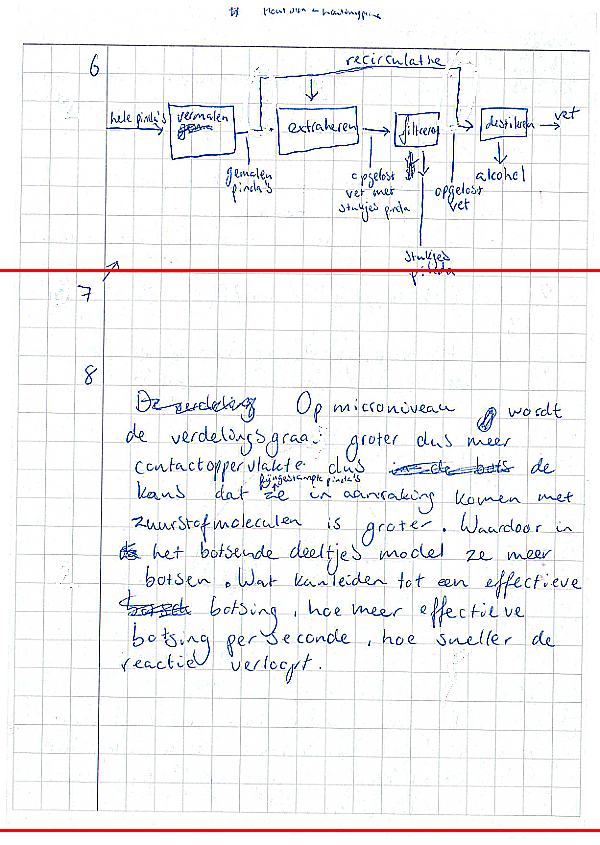 6
recirculatie
hele pinda's
vermalen
extraheren
filtreren
destilleren
vet
gemalen
pinda's
opgelost
vet met
stukjes pinda
opgelost
vet
alcohol
stukjes
pinda
7
8
De verdeling Op microniveau wordt
de verdelingsgraad groter dus meer
contactoppervlakte dus in de bots de
fijngestampte pinda's
kans dat ze in aanraking komen met
zuurstofmoleculen is groter. Waardoor in
het botsende deeltjes model ze meer
botsen. Wat kan leiden tot een effectieve
botsing, hoe meer effectieve
botsing per seconde, hoe sneller de
reactie verloopt.